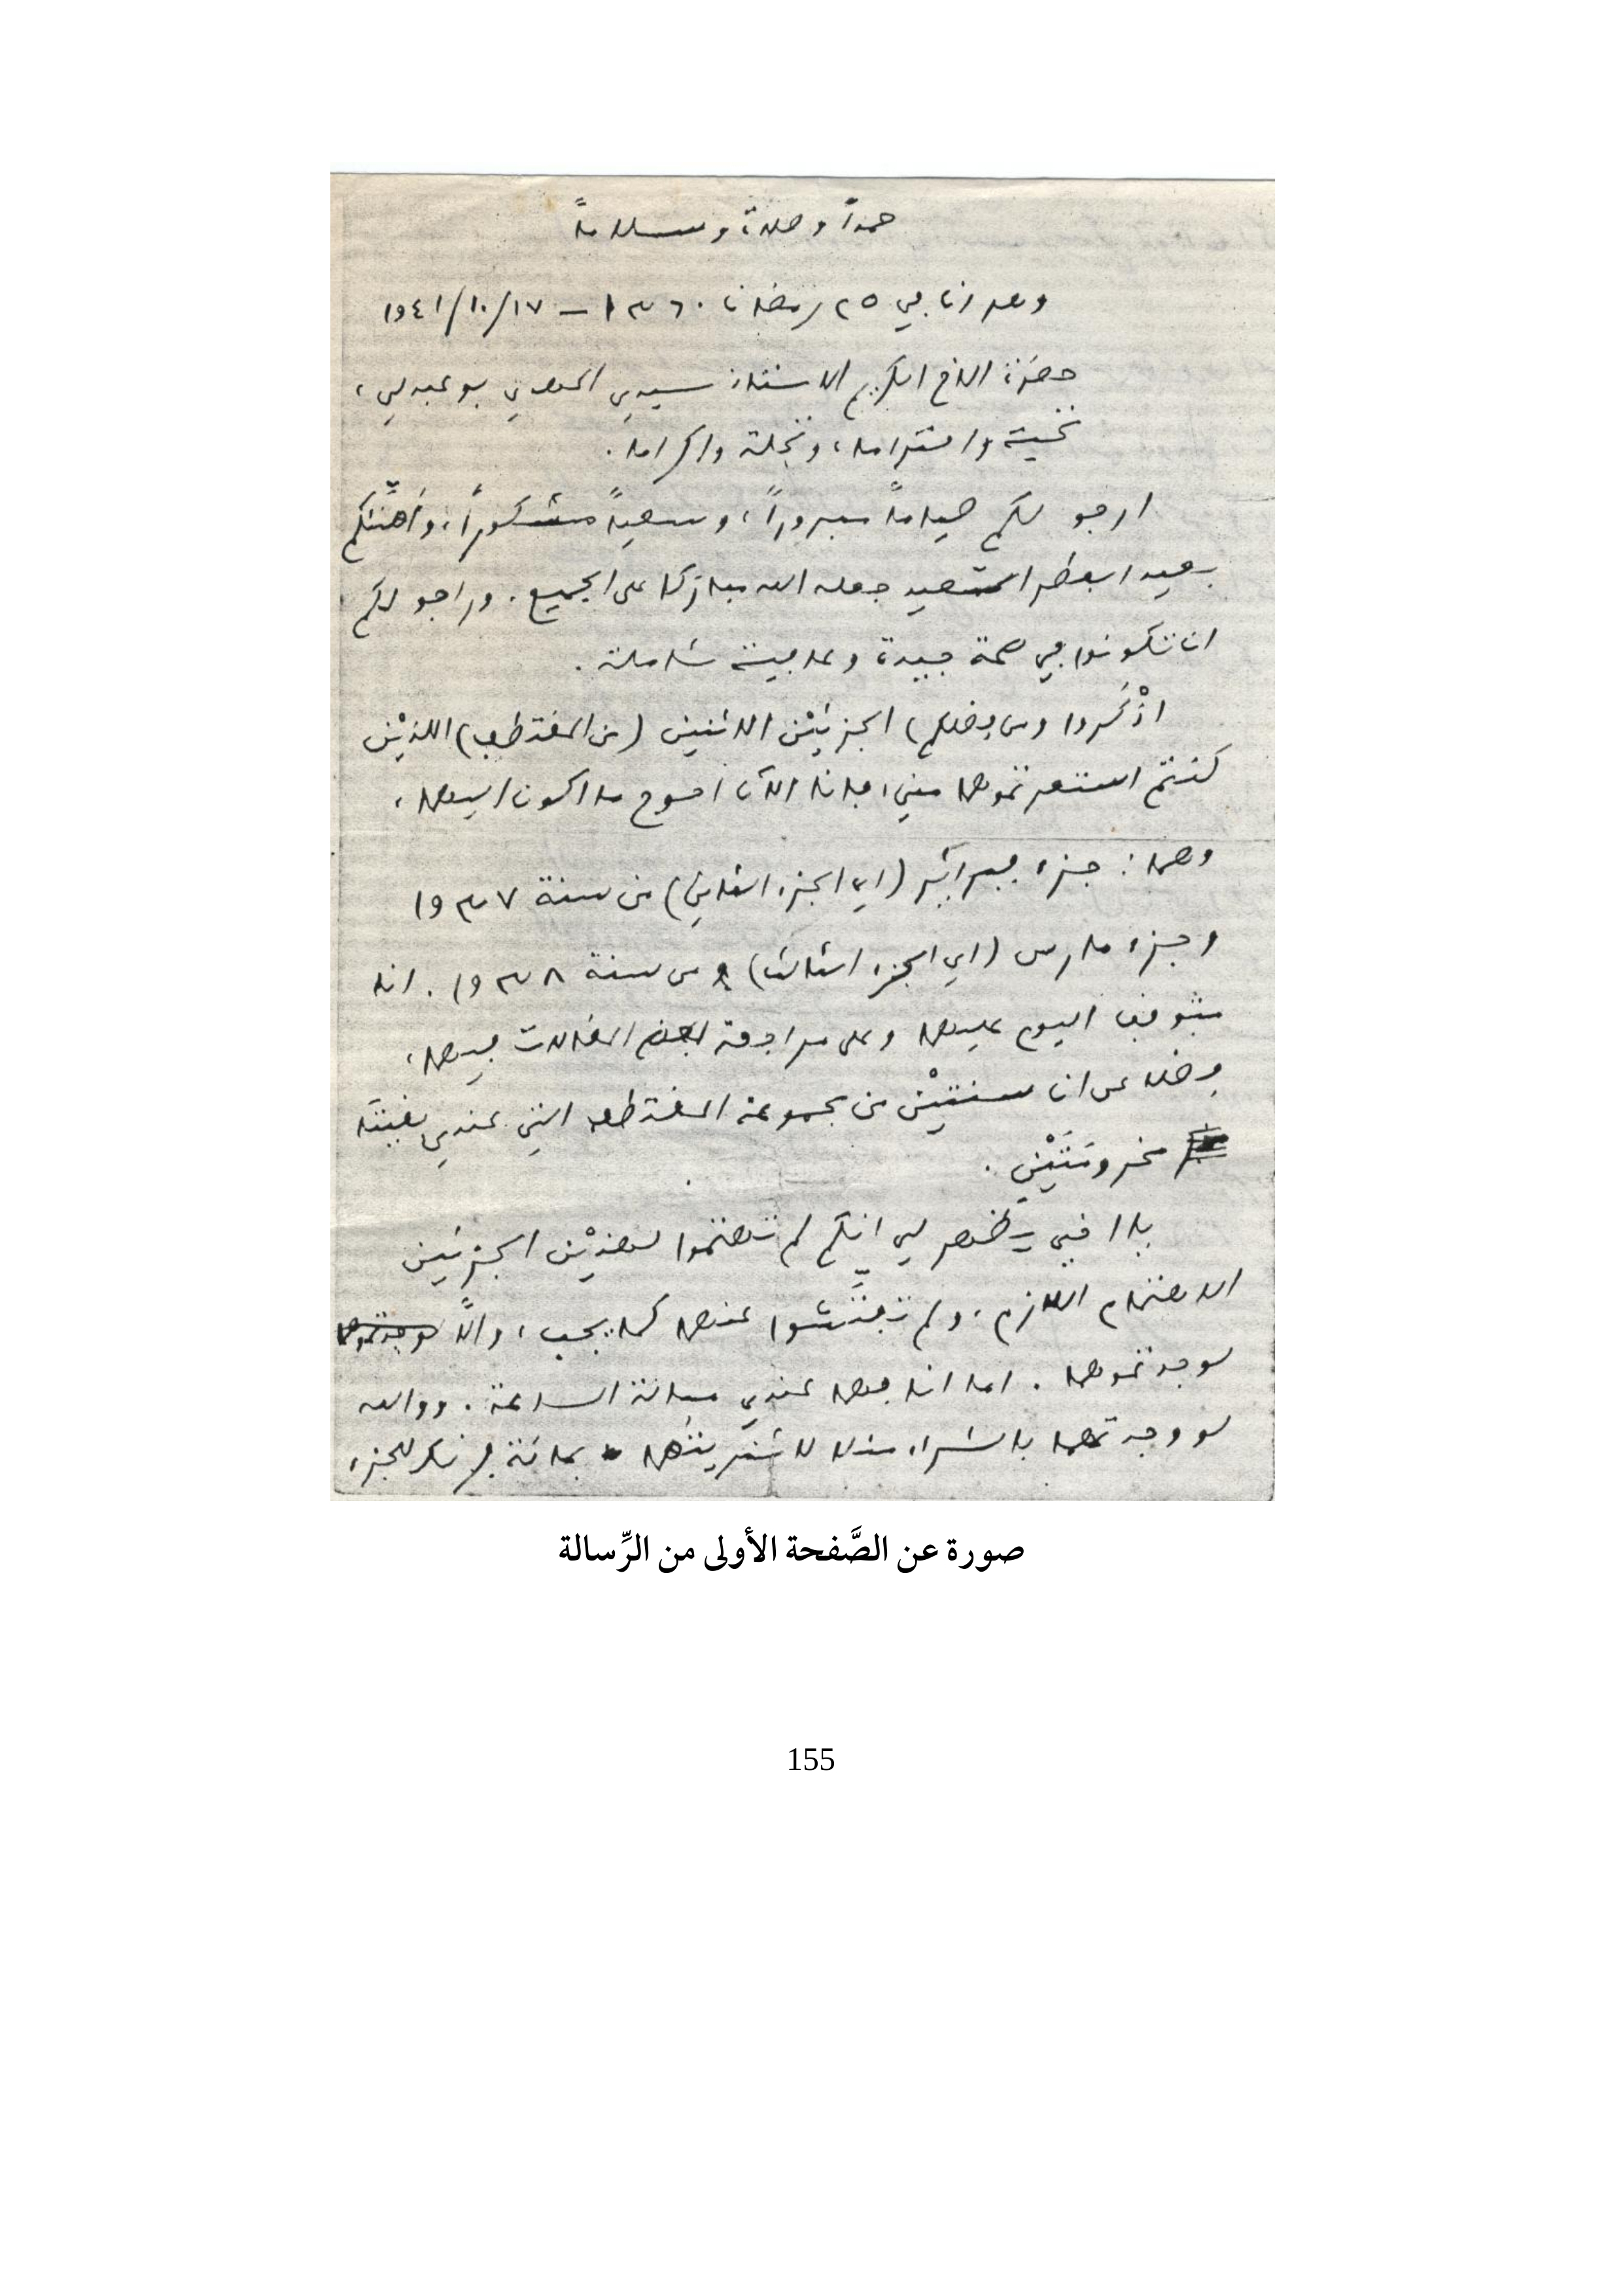 حمداً وصلاة وسلاماً
وهران في ٢٥ رمضان ١٣٦٠ – ١٩٤١/١٠/١٧
حضرة الاخ الكريم الاستاذ سيدي المهدي بوعبدلي،
تحية واحتراما، وتجلة واكراما.
ارجو لكم صياماً مبروراً، وسعياً مشكوراً، وأهنِّئكم
بعيد الفطر السعيد جعله الله مباركا على الجميع. وراجو لكم
ان تكونوا في صحة جيدة وعافية شاملة.
اذْكُروا (من فضلكم) الجزئيْن الاثنين (من المقتطف) اللذيْن
كنتم استعرتموهما مني، فانا الآن احوج ما اكون اليهما،
وهما: جزء فبراير (اي الجزء الثاني) من سنة ١٩٣٧
وجزء مارس (اي الجزء الثالث) من سنة ١٩٣٨. انا
متوقف اليوم عليهما وعلى مراجعة بعض المقالات فيهما،
فضلا عن ان سنتيْن من مجموعة المقتطف التي عندي بقيتا
مخرومتَيْن.
يا اخي يظهر لي انكم لم تهتموا لهذيْن الجزئين
الاهتمام اللازم، ولم تفتِّشوا عنهما كما يجب، والَّا لوجدتموهما
لوجدتموهما. اما انا فهما عندي مسألة الساعة. ووالله
لو وجدتهما بالشراء مثلا لاشتريتُهما بمائة فرنك للجزء
صورة عن الصَّفحة الأولى من الرِّسالة
155